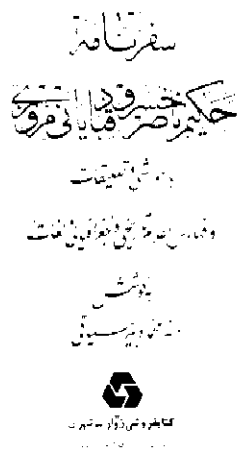 سفرنامهٔ
حکیم ناصر خسرو قبادیانی مروزی
با حواشی و تعلیقات
و فهارس اعلام تاریخی و جغرافیائی و لغات
بکوشش
دکتر محمد دبیر سیاقی
کتابفروشی زوّار